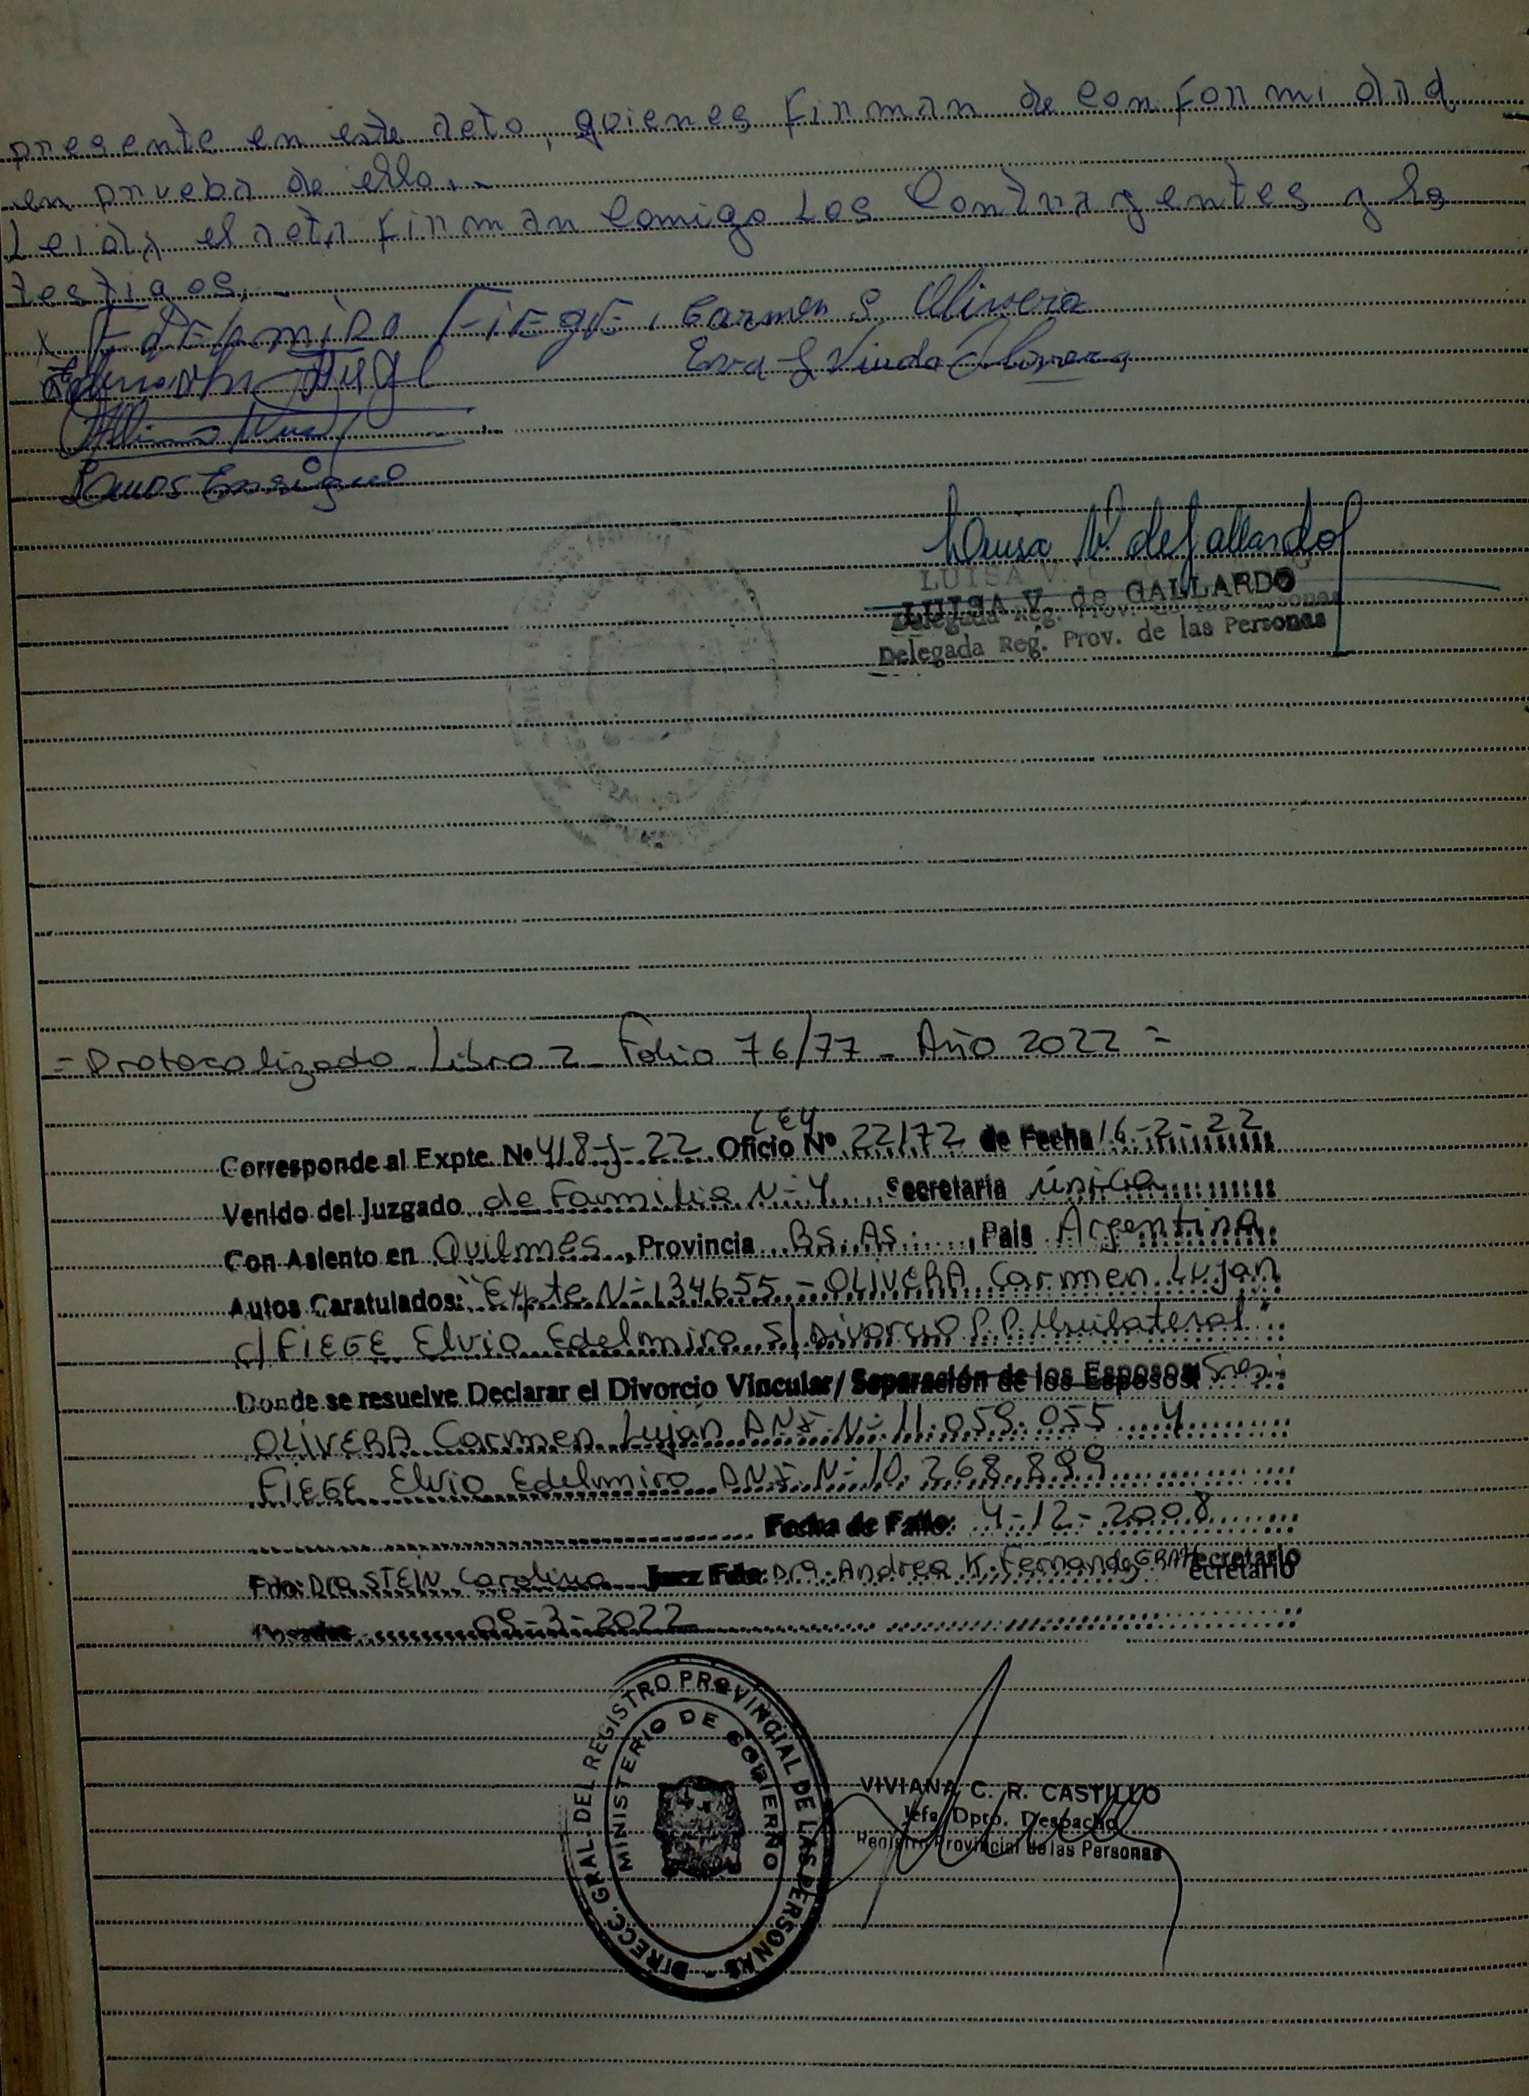 presente en este acto, quienes firman de conformidad
en prueba de ello.-
Leida el acta firman comigo Los Contrayentes y los
testigos.-
X Edelmiro Fiege, Carmen S. Olivera
Eva L Viuda Olivera
Ramos Ensigno
Luisa V. de Gallardo
LUISA V.
LUISA V. de GALLARDO
Delegada Reg. Prov. de las Personas
Delegada Reg. Prov. de las Personas
= Protocolizado Libro 2 - Folio 76/77 - Año 2022 =
LEY
Corresponde al Expte. Nº 418-J-22 Oficio Nº 22172 de Fecha 16-2-22
Venido del Juzgado de Familia Nº 4 Secretaría única
Con Asiento en Quilmes, Provincia BS. AS., Pais Argentina
Autos Caratulados: "Expte Nº 134655 - OLIVERA Carmen Lujan
c/ FIEGE Elvio Edelmiro S/ Divorcio P.P. Unilateral"
Donde se resuelve Declarar el Divorcio Vincular/ Separación de los Esposos: Sres:
OLIVERA Carmen Luján DNI Nº 11.059.055 y
FIEGE Elvio Edelmiro DNI Nº 10.268.899
Fecha de Fallo: 4-12-2008
Fdo: Dra STEIN Carolina Juez Fdo: Dra. Andrea K. Fernandez Secretario
ecretario
09-3-2022
DIRECC. GRAL. DEL REGISTRO PROVINCIAL DE LAS PERSONAS
MINISTERIO DE GOBIERNO
VIVIANA C. R. CASTILLO
Jefa Dpto. Despacho
Registro Provincial de las Personas